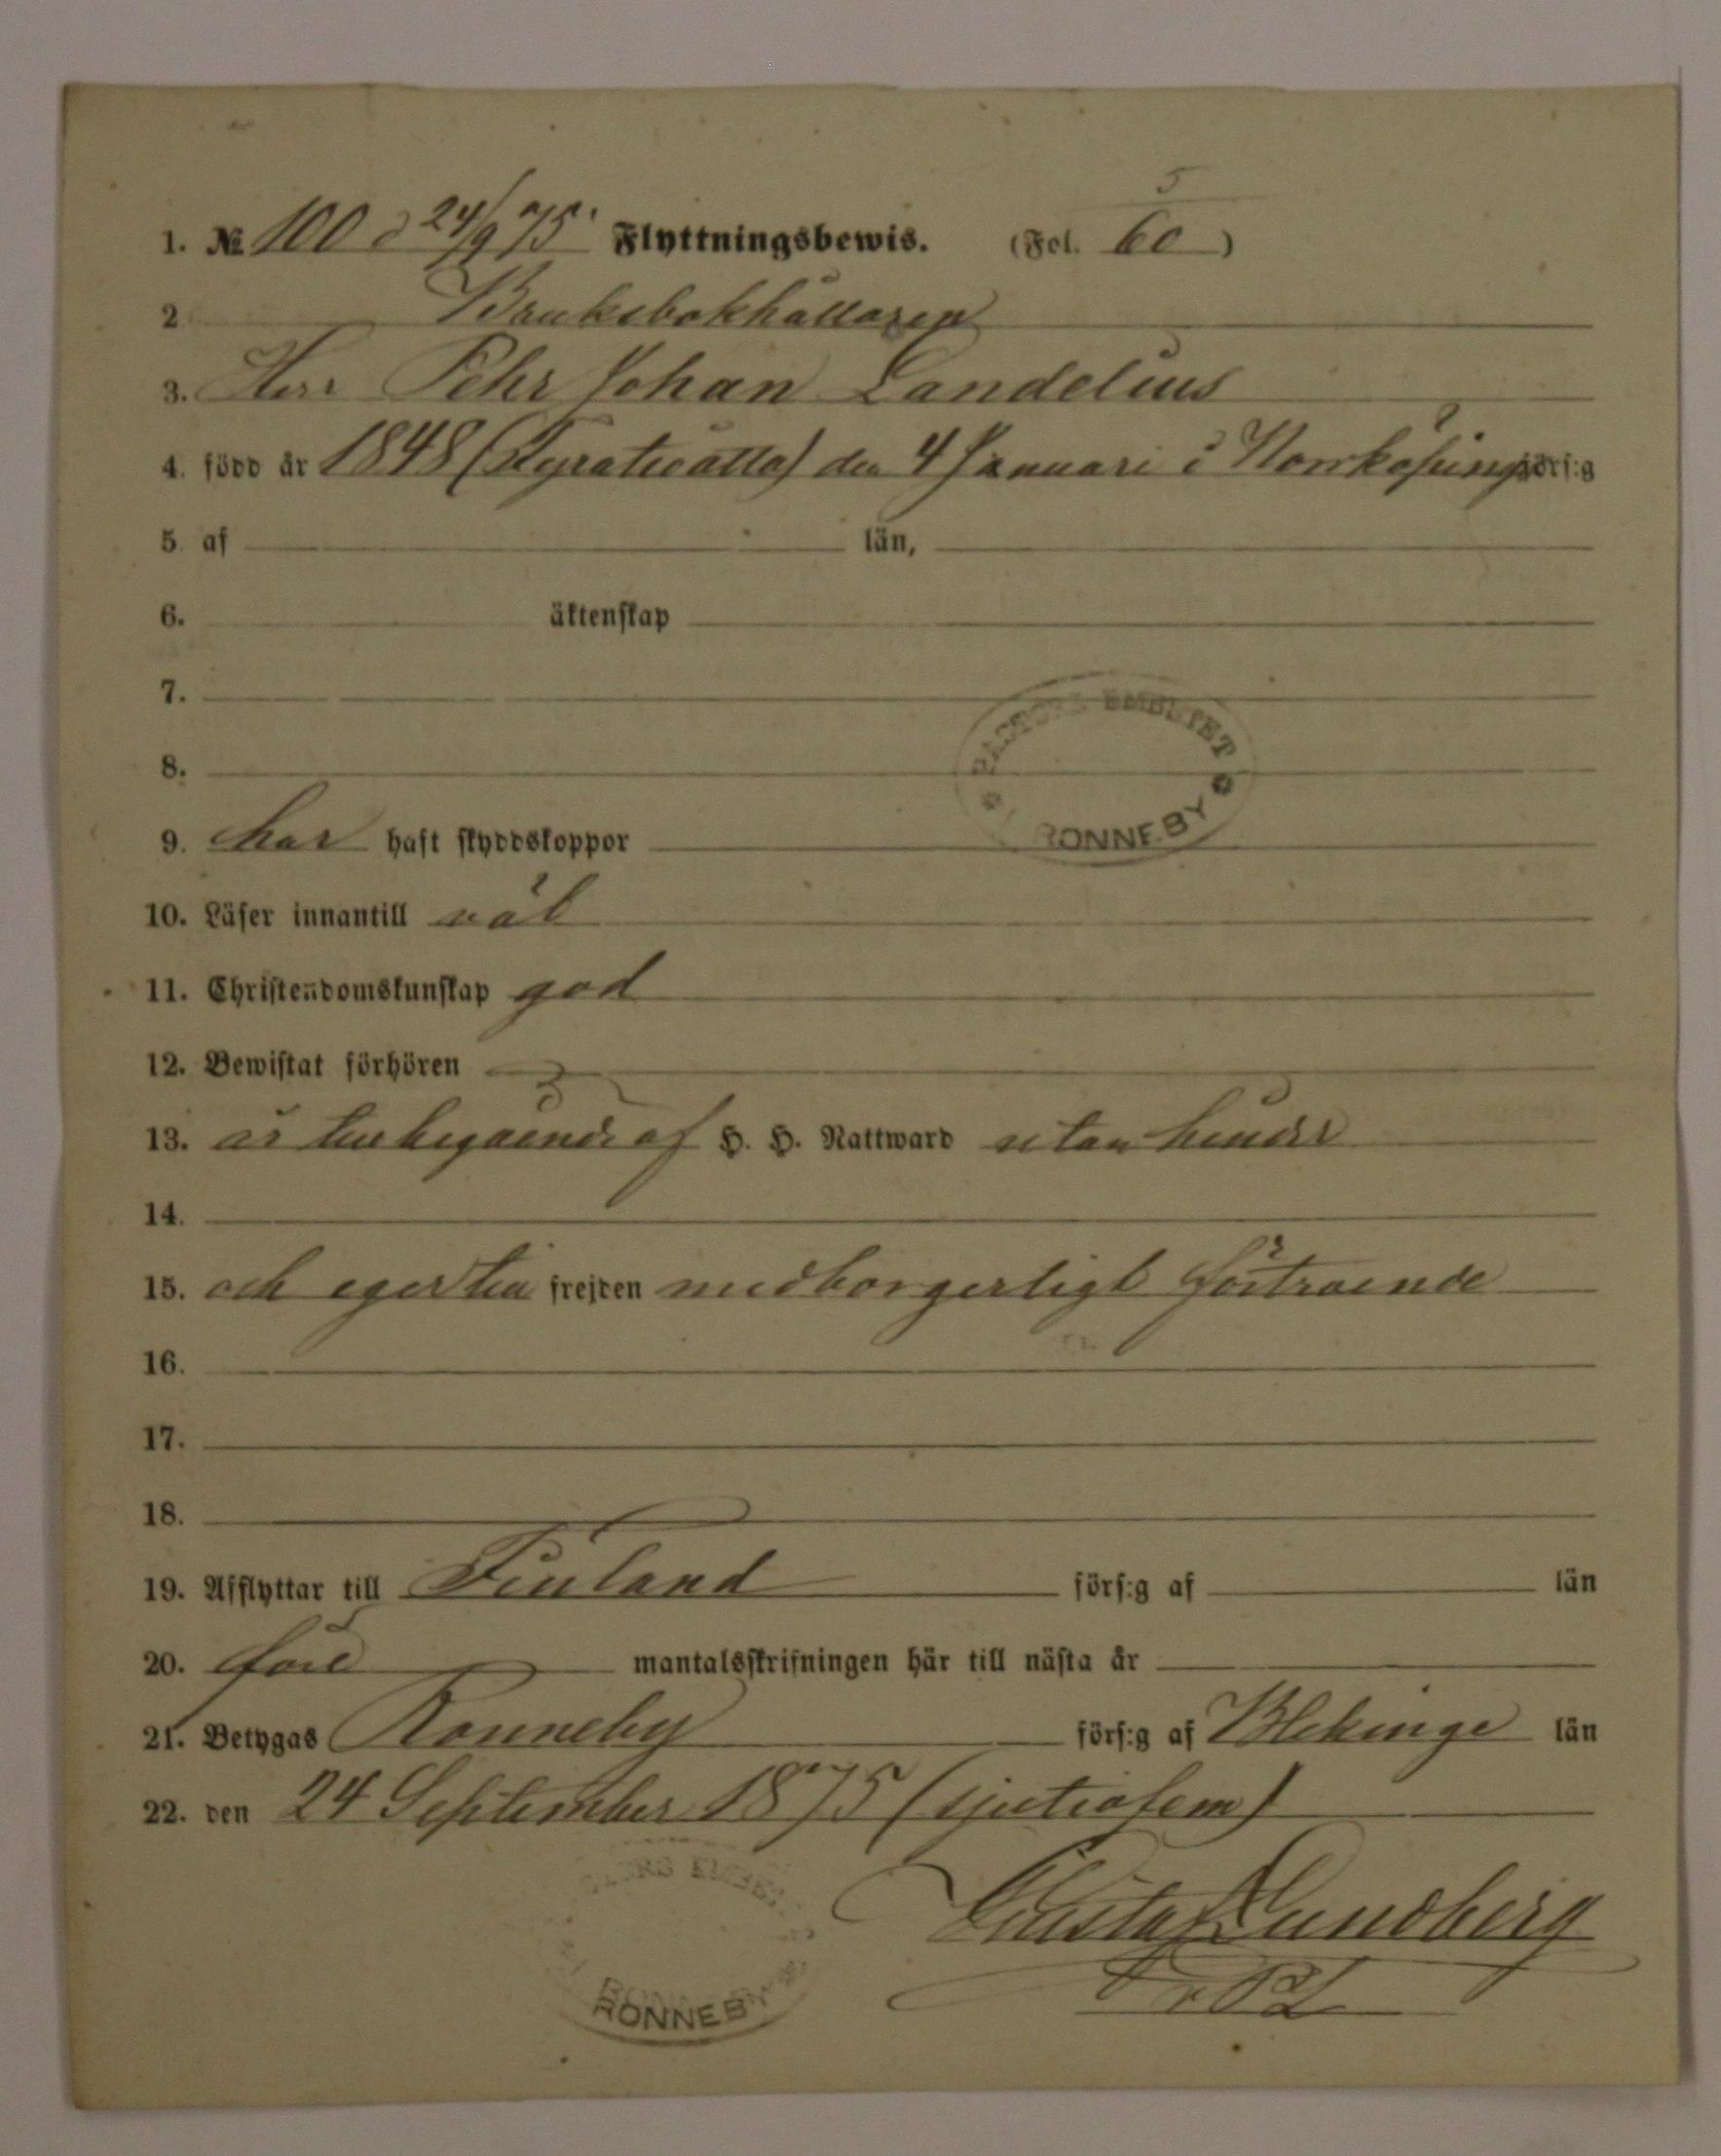 5
1. № 100 d 24/9 75. Flyttningsbewis. (Fol. 60)
2 Bruksbokhållaren
3. Herr Pehr Johan Landelius
4. född år 1848 (fyratioåtta) den 4 Januari i Norrköping förs:g
5. af län,
6. äktenskap
7.
8.
PASTORS EMBETET I RONNEBY
9. har haft skyddskoppor
10. Läser innantill väl
11. Christendomskunskap god
12. Bewistat förhören
13. är till begående af H. H. Nattward utan hinder
14.
15. och eger till frejden medborgerligt förtroende
16.
17.
18.
19. Afflyttar till Finland förs:g af län
20. före mantalsskrifningen här till nästa år
21. Betygas Ronneby förs:g af Blekinge län
22. den 24 September 1875 (sjutiofem)
PASTORS EMBETET I RONNEBY
Gustaf Lundberg